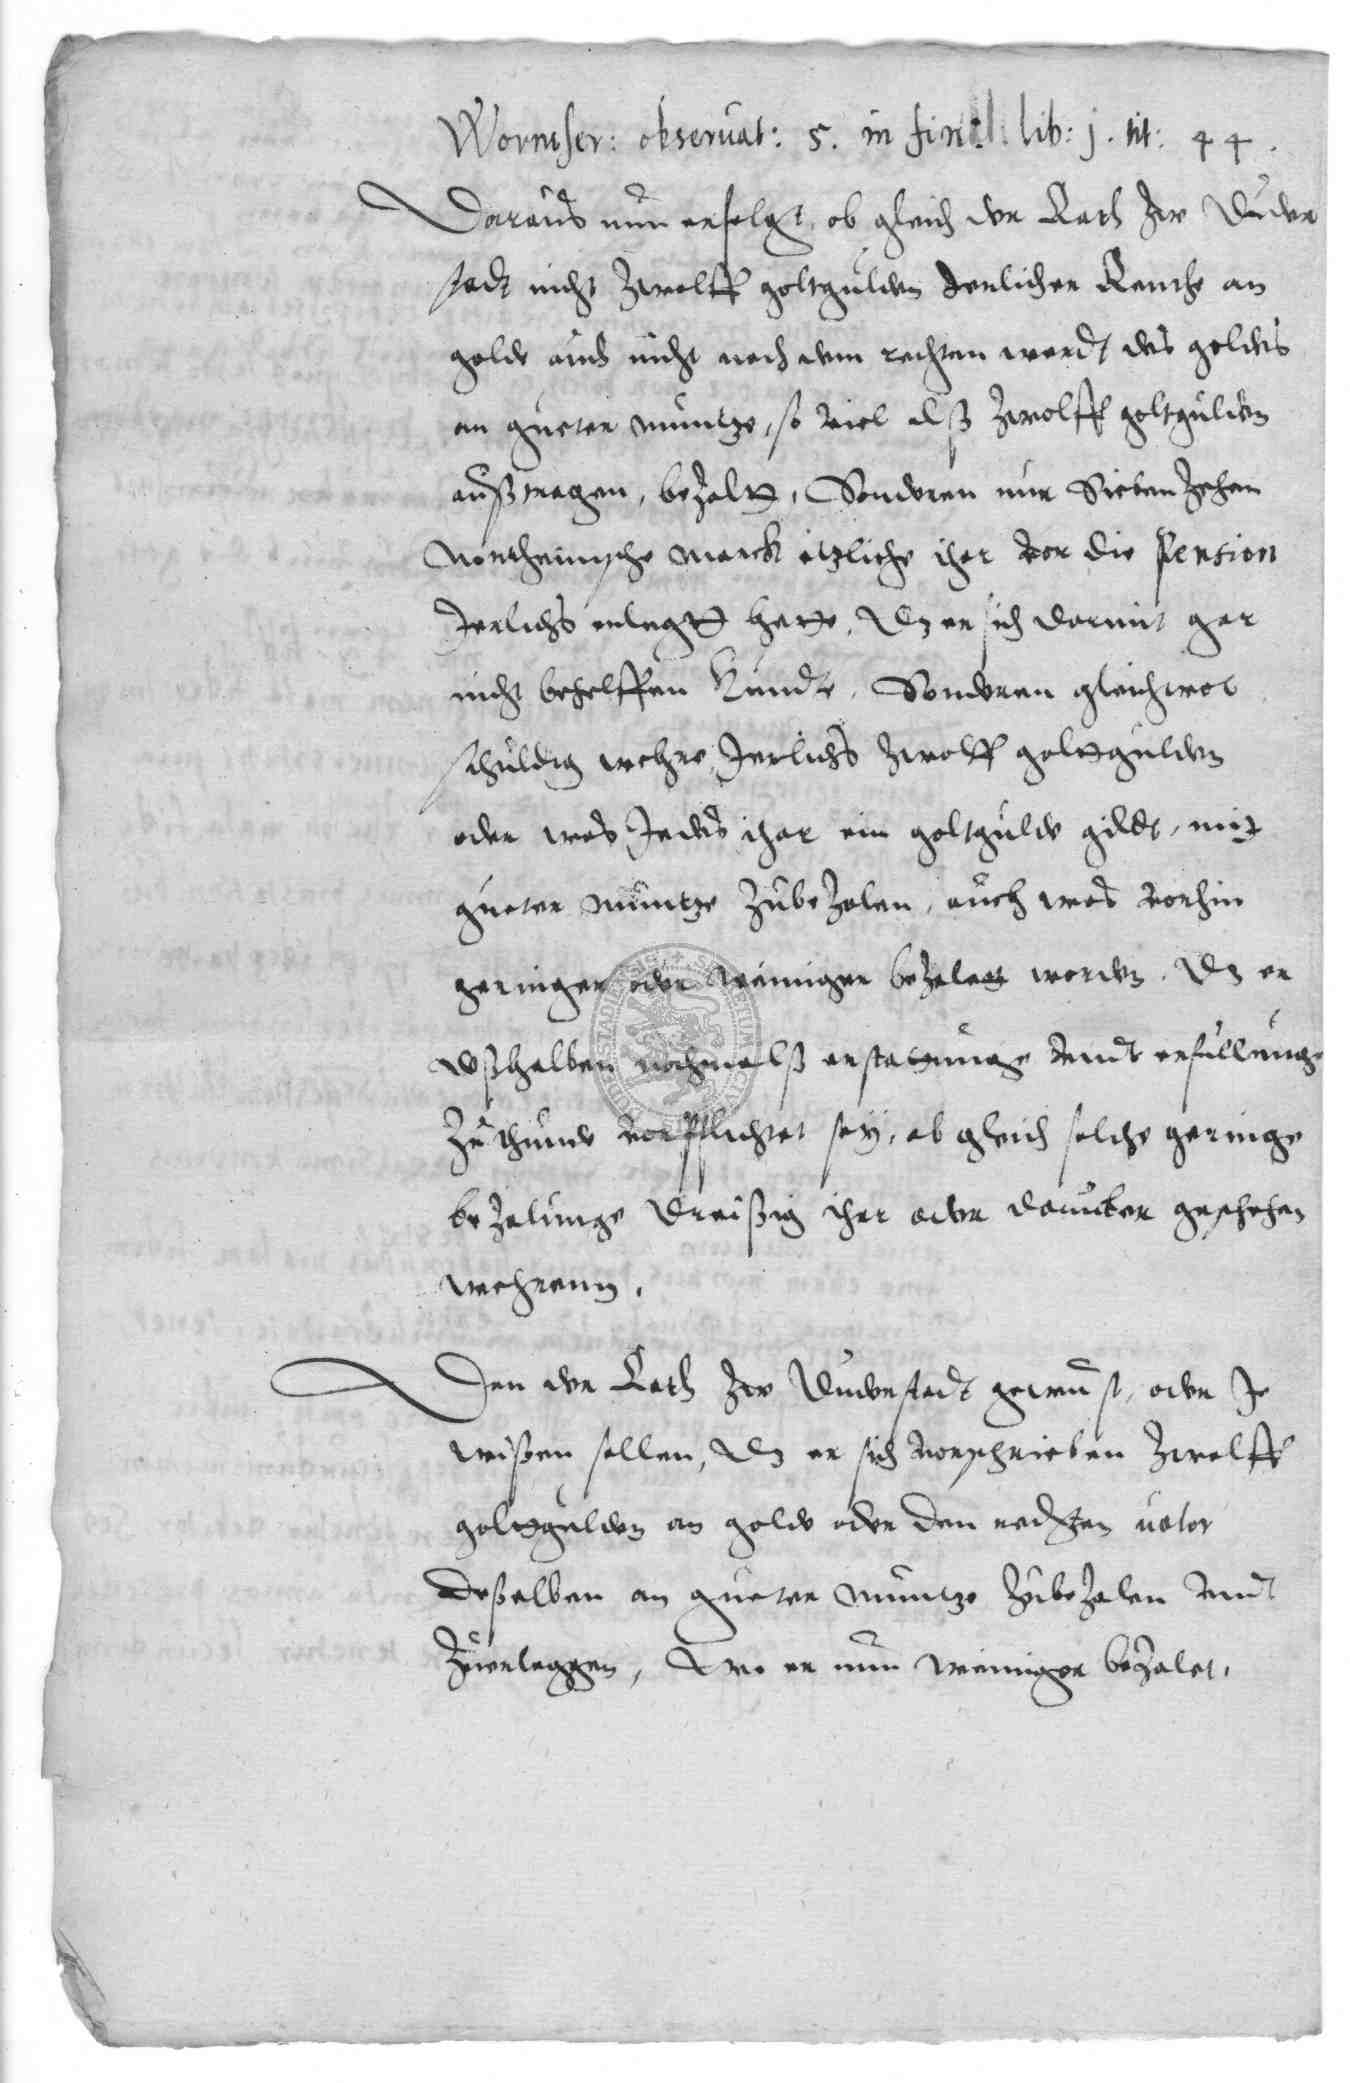 Wormser: obseruat: 5. in fin: lib: j. tit: 44.
Daraus nun erfolgt, ob gleich der Rath zw Duder
stadt nicht Zwolff goltgulden Jerlicher Renthe an
golde auch nicht nach dem rechten werdt des goldes
an gueter muntze, so viel alß Zwolff goltgulden
außtragen, bezaltt, Sonderen nur Siebenzehen
Northeimsche marck etzliche ihar vor die Pension
Jerlichs erlegtt hette, Dz er sich darmit gar
nicht behelffen kundte, Sonderen gleichwol
schuldig wehre, Jerlichs Zwolff goltgulden
oder was Jedes ihar ein goltgulde gildt, mit
gueter muntze Zubezalen, auch was vorhin
geringer oder weiniger bezalet worden, Dz er
deßhalben nochmalß erstattunge vndt erfullunge
Zuthunde vorpflichtet sey, ob gleich solche geringe
bezalunge Dreißig ihar oder daruber geschehen
wehrenn.
Den der Rath zw Duderstadt gewust, oder Je
wißen sollen, Dz er sich vorschrieben Zwolff
goltgulden an golde oder den rechten valor
deßelben an gueter muntze Zubezalen vndt
Zuerleggen, Wo er nun weiniger bezalet,
SIGILLUM CIVITATIS DUDERSTADIENSIS